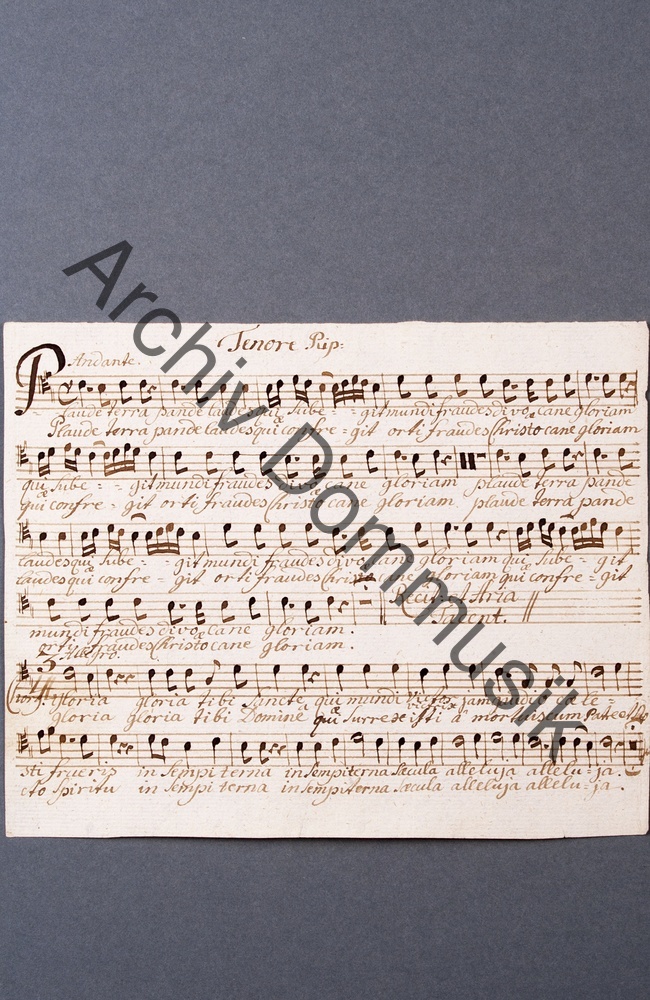 Tenore Rip:
Andante.
Plaude terra pande laudes qui sube - - git mundi fraudes divo cane gloriam
Plaude terra pande laudes qui confre = git orti fraudes Christo cane gloriam
qui sube = - git mundi fraudes divo cane gloriam plaude terra pande
qui confre = git orti fraudes Christo cane gloriam plaude terra pande
laudes qui sube = - git mundi fraudes divo cane gloriam qui sube = git
laudes qui confre - git orti fraudes Christo cane gloriam qui confre = git
Recit: et Aria
Tacent.
mundi fraudes divo cane gloriam.
orti fraudes Christo cane gloriam.
Allegro.
gloria gloria tibi Sancte qui mundi victor jam cæle =
gloria gloria tibi Domine qui surrexisti a mortuis cum Patre et
sti frueris in sempiterna in sempiterna sæcula alleluja allelu = ja.
cto Spiritu in sempiterna in sempiterna sæcula alleluja allelu = ja.
Archiv Dommusik